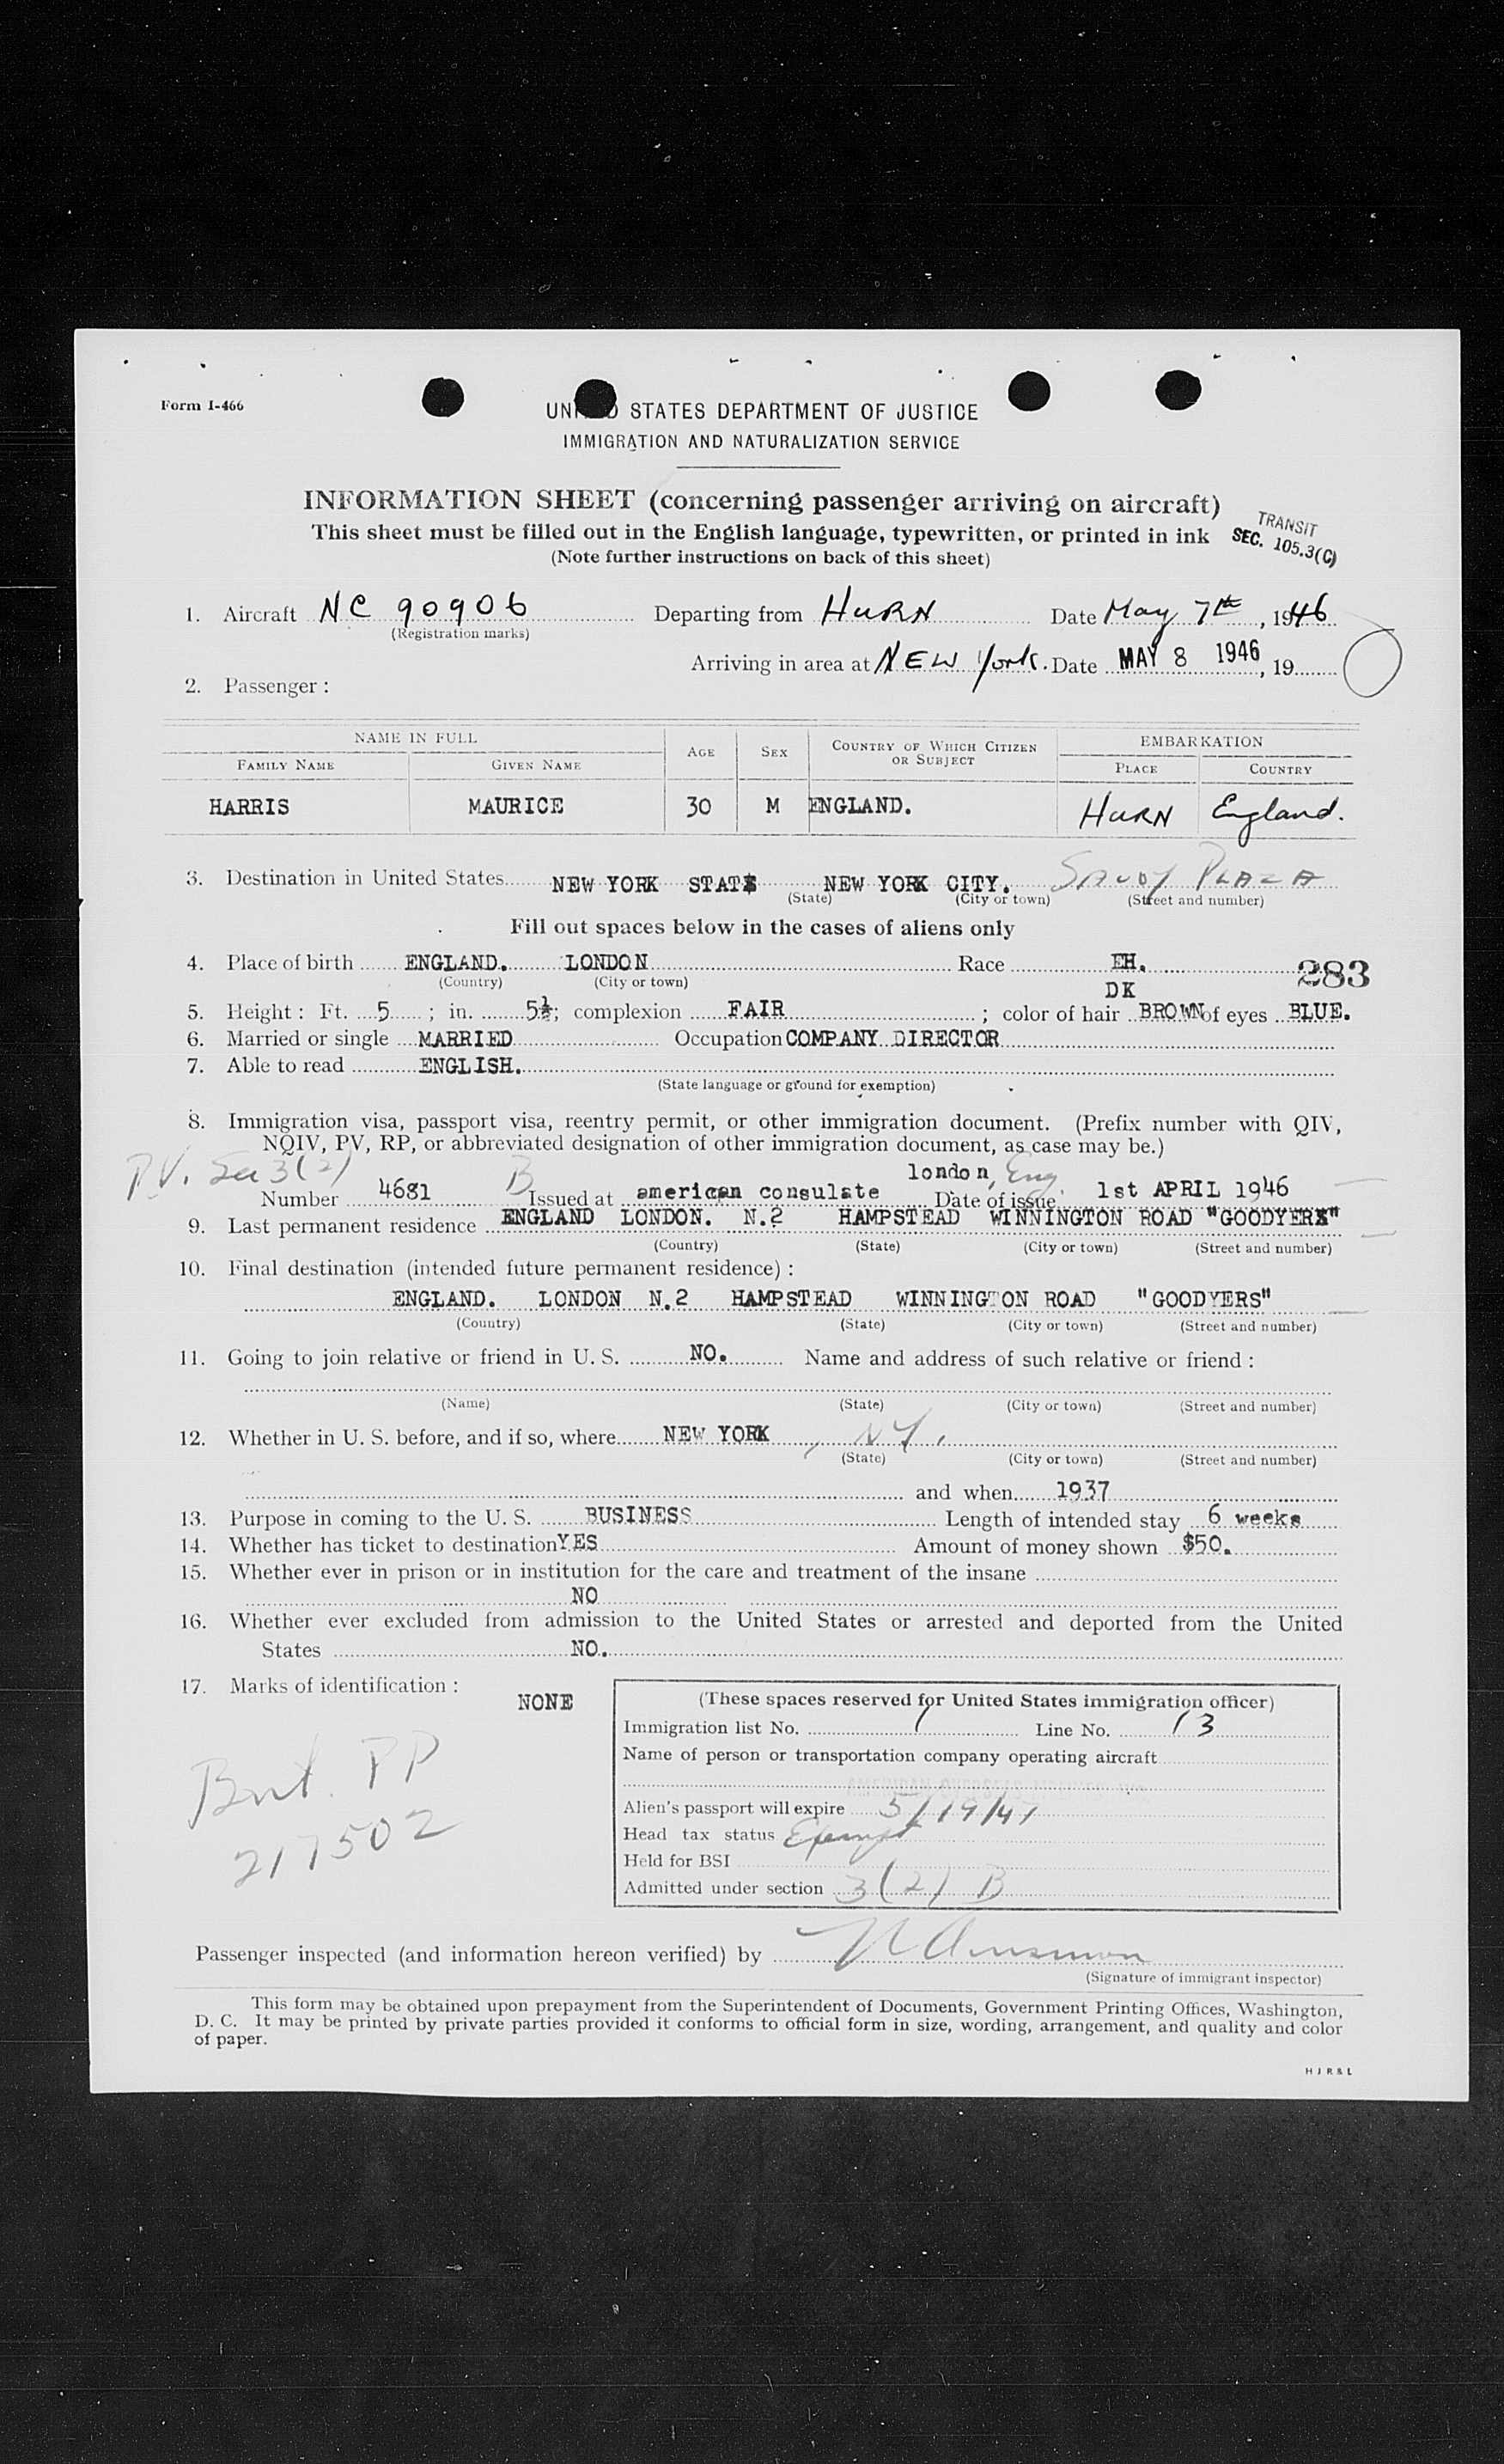 Form I-466
UNITED STATES DEPARTMENT OF JUSTICE
IMMIGRATION AND NATURALIZATION SERVICE
INFORMATION SHEET (concerning passenger arriving on aircraft)
This sheet must be filled out in the English language, typewritten, or printed in ink
(Note further instructions on back of this sheet)
TRANSIT
SEC. 105.3(C)
1. Aircraft NC 90906 Departing from HURN Date May 7th, 1946
(Registration marks)
Arriving in area at NEW York. Date MAY 8 1946, 19
2. Passenger :
NAME IN FULL AGE SEX COUNTRY OF WHICH CITIZEN OR SUBJECT EMBARKATION
FAMILY NAME GIVEN NAME PLACE COUNTRY
HARRIS MAURICE 30 M ENGLAND. HURN England.
3. Destination in United States NEW YORK STATE NEW YORK CITY. SAVOY PLAZA
(State) (City or town) (Street and number)
Fill out spaces below in the cases of aliens only
4. Place of birth ENGLAND. LONDON Race EH. 283
(Country) (City or town)
DK
5. Height : Ft. 5 ; in. 5½; complexion FAIR ; color of hair BROWN of eyes BLUE.
6. Married or single MARRIED Occupation COMPANY DIRECTOR
7. Able to read ENGLISH.
(State language or ground for exemption)
8. Immigration visa, passport visa, reentry permit, or other immigration document. (Prefix number with QIV,
NQIV, PV, RP, or abbreviated designation of other immigration document, as case may be.)
P.V. Sec 3(2) B london, Eng.
Number 4681 Issued at american consulate Date of issue 1st APRIL 1946
9. Last permanent residence ENGLAND LONDON. N.2 HAMPSTEAD WINNINGTON ROAD "GOODYERS"
(Country) (State) (City or town) (Street and number)
10. Final destination (intended future permanent residence) :
ENGLAND. LONDON N.2 HAMPSTEAD WINNINGTON ROAD "GOODYERS"
(Country) (State) (City or town) (Street and number)
11. Going to join relative or friend in U. S. NO. Name and address of such relative or friend :
(Name) (State) (City or town) (Street and number)
12. Whether in U. S. before, and if so, where NEW YORK, NY.
(State) (City or town) (Street and number)
and when 1937
13. Purpose in coming to the U. S. BUSINESS Length of intended stay 6 weeks
14. Whether has ticket to destination YES Amount of money shown $50.
15. Whether ever in prison or in institution for the care and treatment of the insane
NO
16. Whether ever excluded from admission to the United States or arrested and deported from the United
States NO.
17. Marks of identification :
NONE
Brit. PP
217502
(These spaces reserved for United States immigration officer)
Immigration list No. 1 Line No. 13
Name of person or transportation company operating aircraft
Alien's passport will expire 5/19/47
Head tax status Exempt
Held for BSI
Admitted under section 3(2) B
Passenger inspected (and information hereon verified) by
(Signature of immigrant inspector)
This form may be obtained upon prepayment from the Superintendent of Documents, Government Printing Offices, Washington,
D. C. It may be printed by private parties provided it conforms to official form in size, wording, arrangement, and quality and color
of paper.
H J R & L